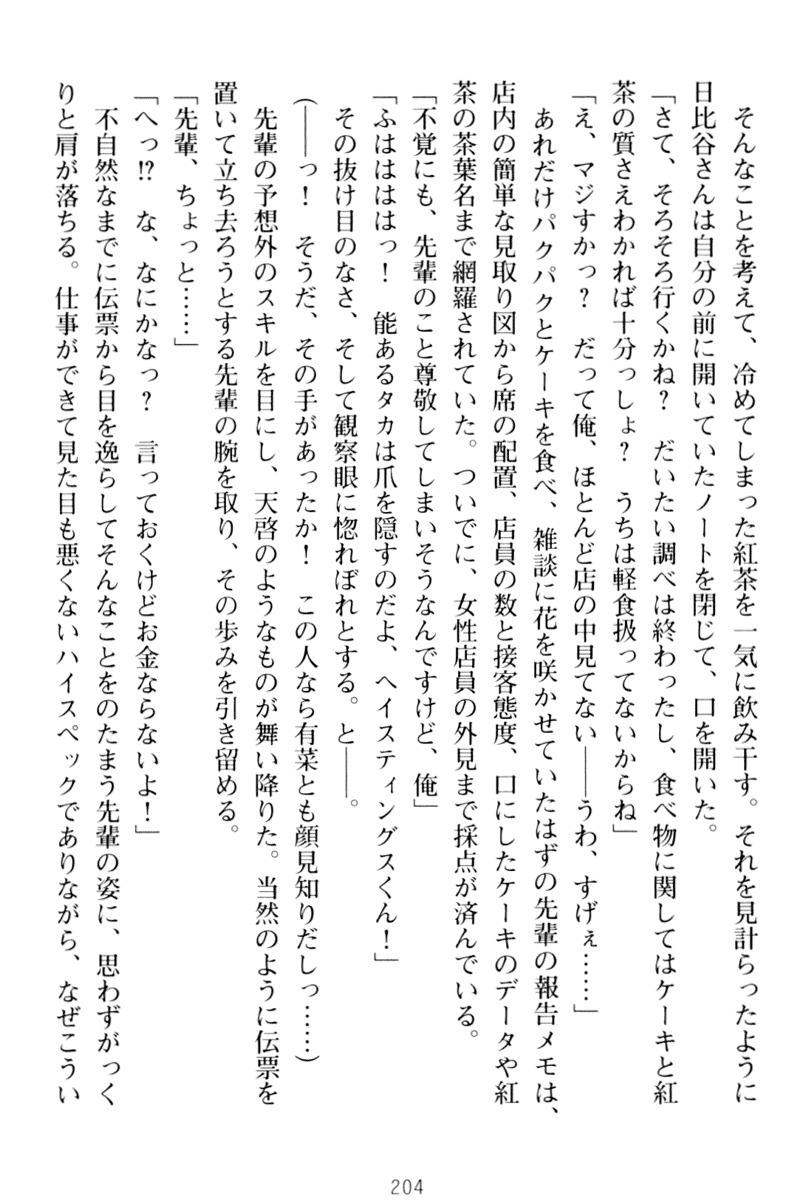 そんなことを考えて、冷めてしまった紅茶を一気に飲み干す。それを見計らったように
日比谷さんは自分の前に開いていたノートを閉じて、口を開いた。
「さて、そろそろ行くかね？　だいたい調べは終わったし、食べ物に関してはケーキと紅
茶の質さえわかれば十分っしょ？　うちは軽食扱ってないからね」
「え、マジすかっ？　だって俺、ほとんど店の中見てない――うわ、すげぇ……」
　あれだけパクパクとケーキを食べ、雑談に花を咲かせていたはずの先輩の報告メモは、
店内の簡単な見取り図から席の配置、店員の数と接客態度、口にしたケーキのデータや紅
茶の茶葉名まで網羅されていた。ついでに、女性店員の外見まで採点が済んでいる。
「不覚にも、先輩のこと尊敬してしまいそうなんですけど、俺」
「ふはははは っ！　能あるタカは爪を隠すのだよ、ヘイスティングスくん！」
　その抜け目のなさ、そして観察眼に惚れぼれとする。と――。
（――っ！　そうだ、その手があったか！　この人なら有菜とも顔見知りだしっ……）
　先輩の予想外のスキルを目にし、天啓のようなものが舞い降りた。当然のように伝票を
置いて立ち去ろうとする先輩の腕を取り、その歩みを引き留める。
「先輩、ちょっと……」
「へっ!?　な、なにかなっ？　言っておくけどお金ならないよ！」
　不自然なまでに伝票から目を逸らしてそんなことをのたまう先輩の姿に、思わずがっく
りと肩が落ちる。仕事ができて見た目も悪くないハイスペックでありながら、なぜこうい
204